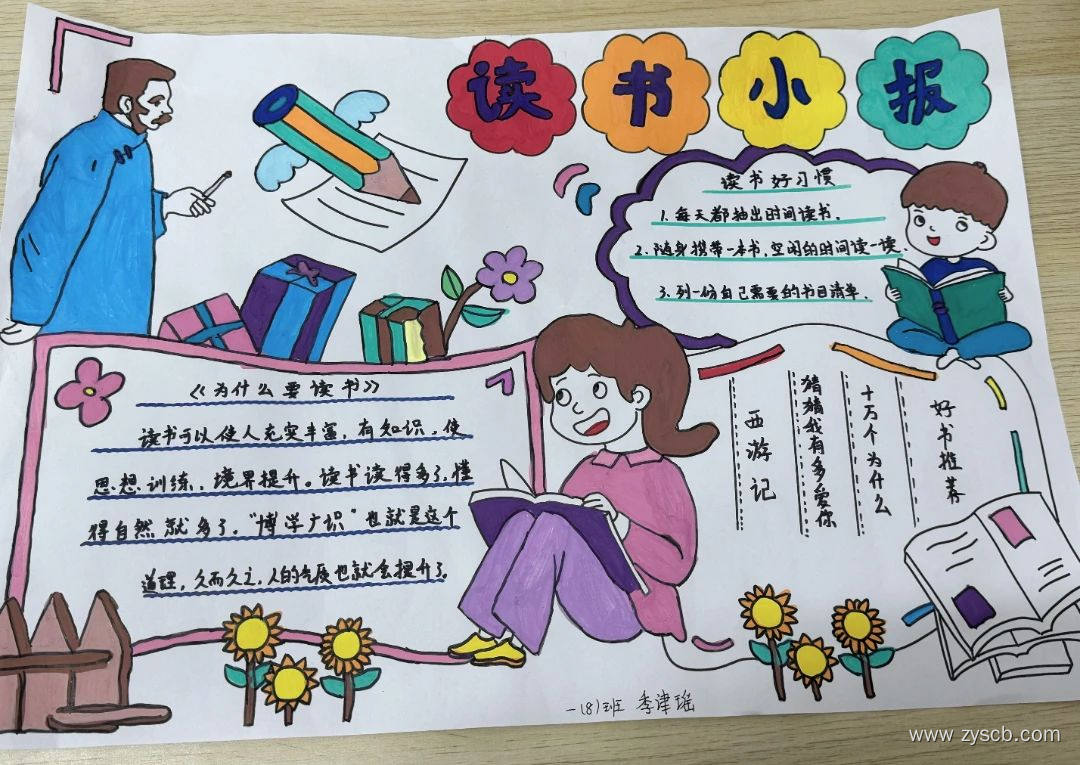 读书小报
读书好习惯
1. 每天都抽出时间读书.
2. 随身携带一本书,空闲的时间读一读.
3. 列一份自己需要的书目清单.
《为什么要读书》
读书可以使人充实丰富,有知识,使
思想训练、境界提升。读书读得多了,懂
得自然就多了。“博学广识”也就是这个
道理,久而久之,人的气质也就会提升了。
好书推荐
十万个为什么
猜猜我有多爱你
西游记
一(8)班 季津瑶
www.zyscb.com